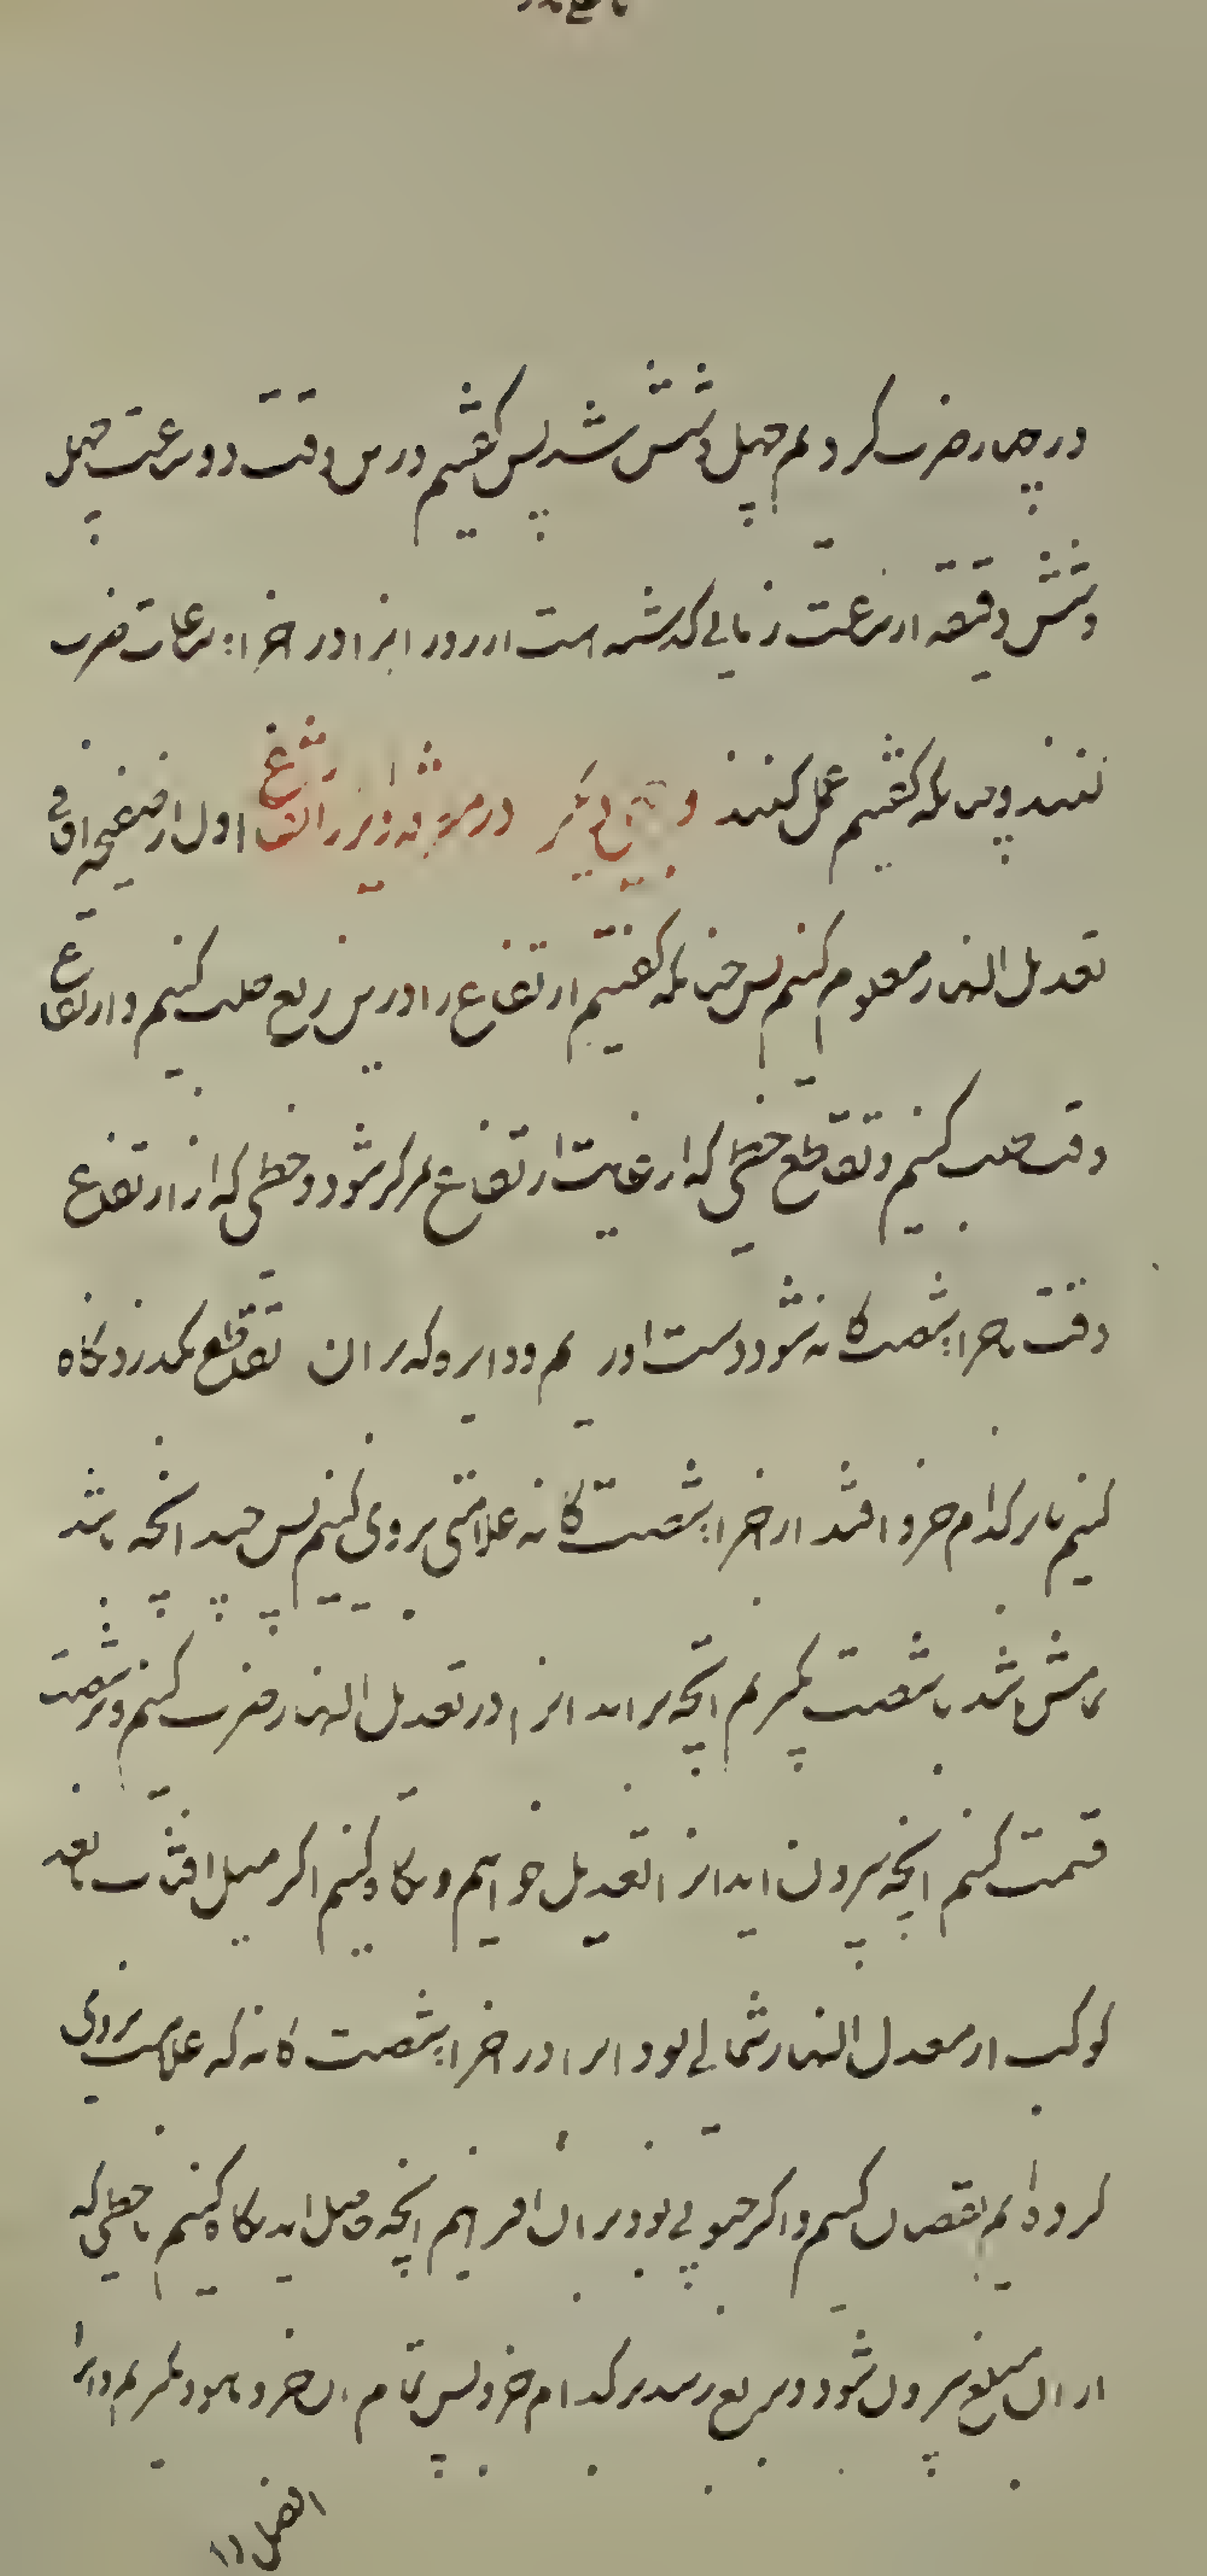 در چهار ضرب کردیم چهل و شش شد پس گفتیم درین وقت دو ساعت چهل
و شش دقیقه از ساعت زمانی گذشته است از روز انرا در اجزاء ساعات ضرب
کنند و چنانکه گفتیم عمل کنند و دیگر در اول از صفیحه افاقی
تعدیل النهار معلوم کنیم پس چنانکه گفتیم ارتفاع را درین ربع طلب کنیم و ارتفاع
وقت طلب کنیم و تقاطع خطی که از غایت ارتفاع بمرکز شود و خطی که از ارتفاع
وقت باجزاء شصت کانه شود دست اوریم و دایره که بر ان تقاطع بگذرد نگاه
کنیم تا بر کدام جزو افتد از اجزاء شصت کانه علامتی بر وی کنیم پس چند انچه باشد
باشد با شصت بگیریم انچه براید انرا در تعدیل النهار ضرب کنیم و بر شصت
قسمت کنیم انچه بیرون اید انرا تعدیل خوانیم و نگاه کنیم اگر میل افتاب یا بعد
کوکب از معدل النهار شمالی بود انرا در اجزاء شصت کانه که علامت بر وی
کرده ایم نقصان کنیم و اگر جنوبی بود بر ان افزاییم انچه حاصل اید نگاه کنیم تا خطی که
از ان مبلغ بیرون شود و بربع رسد بر کدام جزو پس تمام ان جزو تا نود بگیریم و انرا
الفضل